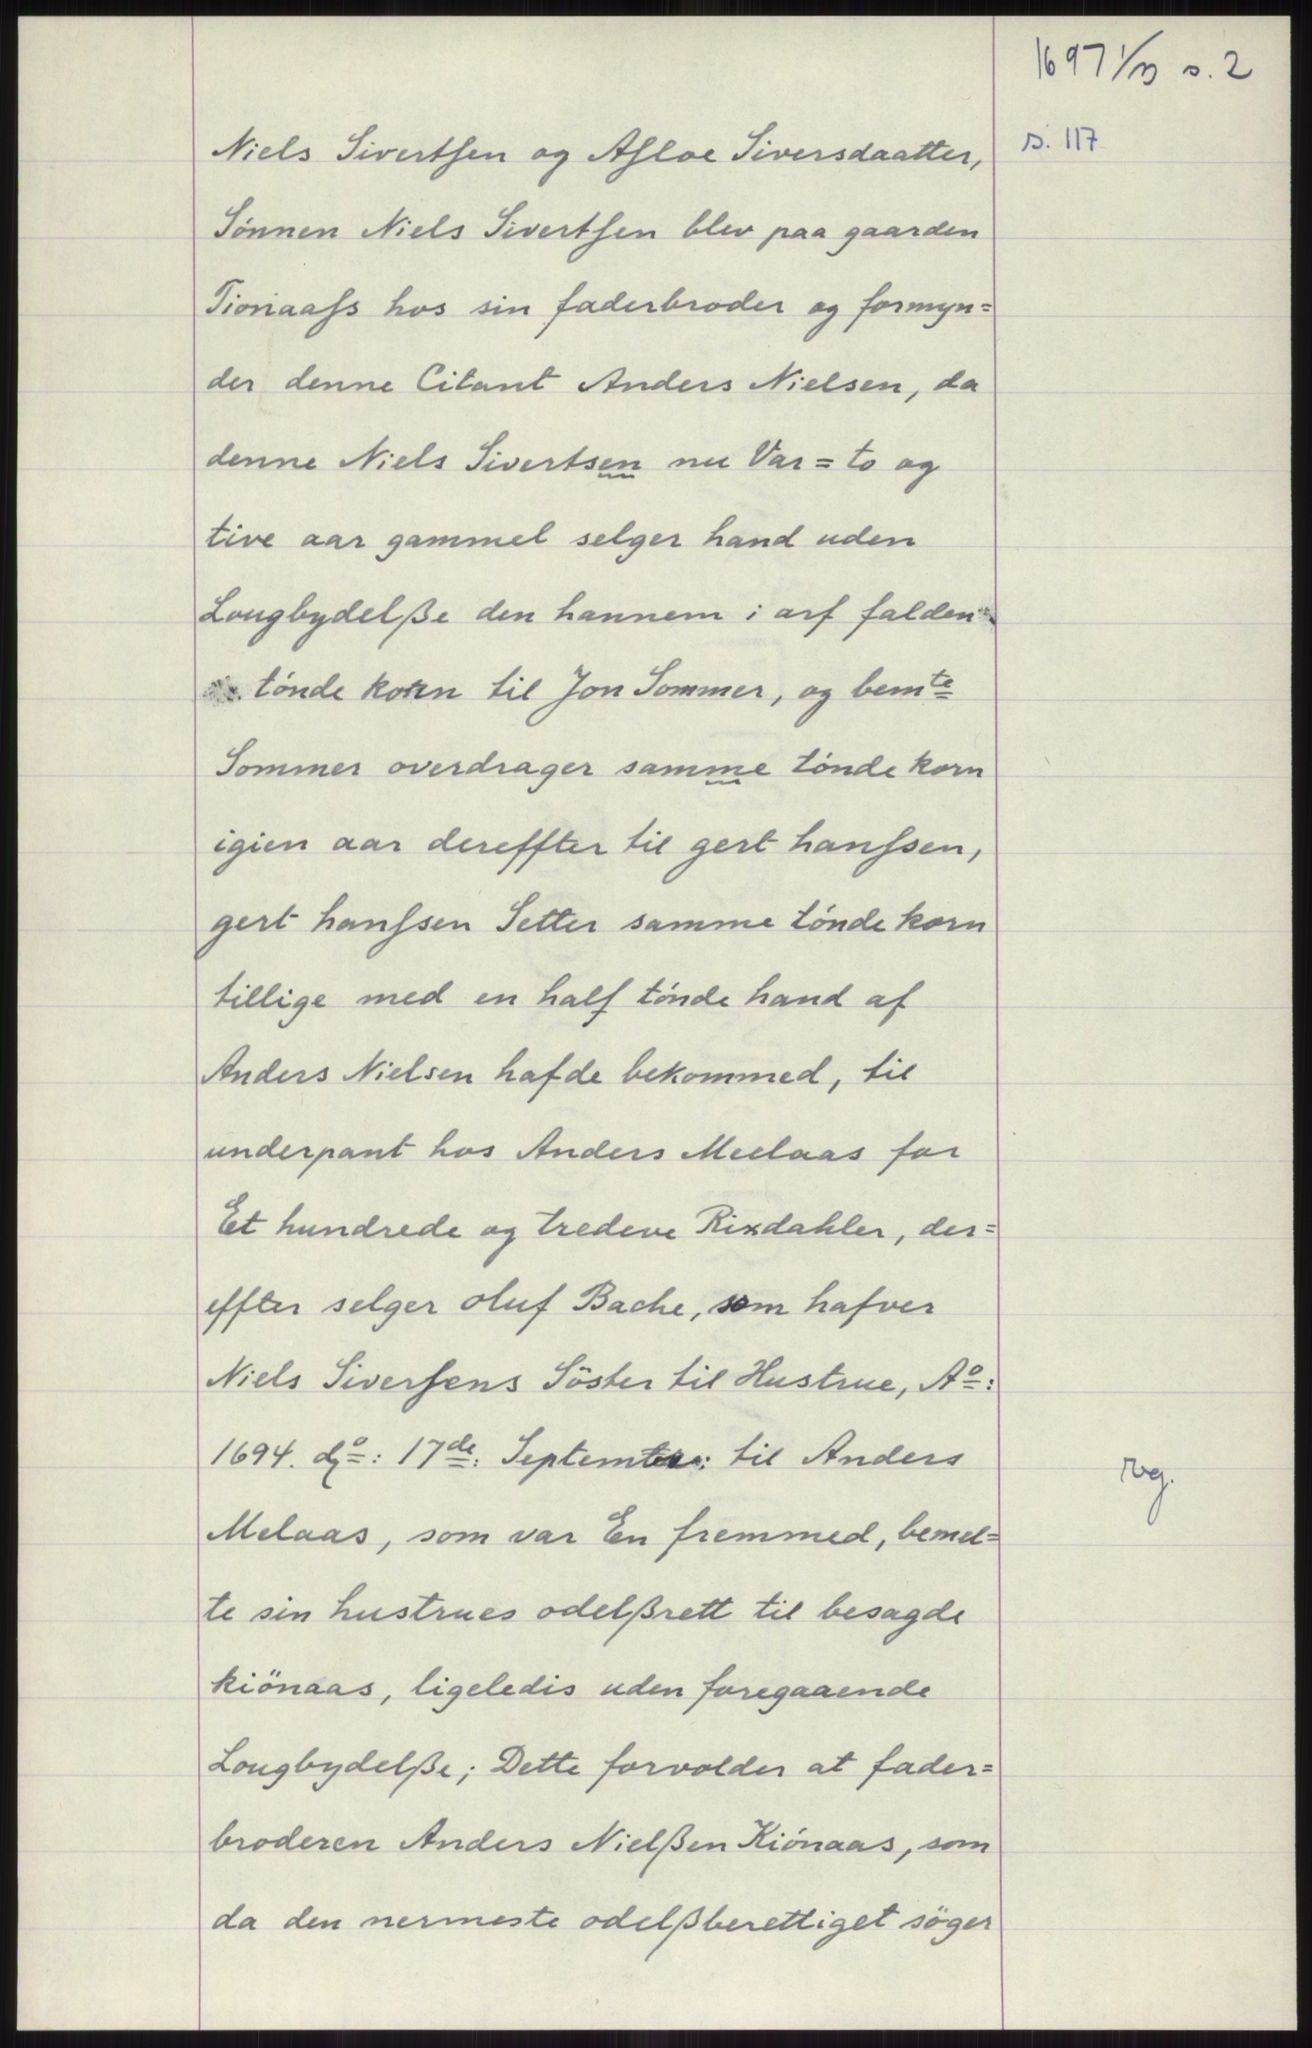 1697 1/3 s. 2
s. 117
Niels Sivertsen og Asloe Siversdaatter,
Sónnen Niels Sivertsen blev paa gaarden
Tionaass hos sin faderbroder og formyn=
der denne Citant Anders Nielsen, da
denne Niels Sivertsen nu Var = to og
tive aar gammel selger hand uden
Lougbydelße den hannem i arf falden
tónde korn til Jon Sommer, og bemte
Sommer overdrager samme tónde korn
igien aar dereffter til gert hanssen,
gert hanssen Setter samme tónde korn
tillige med en half tónde hand af
Anders Nielsen hafde bekommed, til
underpant hos Anders Meelaas for
Et hundrede og tredeve Rixdahler, der=
effter selger oluf Bache, som hafver
Niels Siversens Söster til Hustrue, Ao:
1694. do: 17de: Septembr: til Anders
rvg.
Melaas, som var En fremmed, bemel=
te sin hustrues odelßrett til besagde
kiönaas, ligeledis uden foregaaende
Lougbydelße; Dette forvolder at fader=
broderen Anders Nielßen Kiónaas, som
da den nermeste odelßberettiget söger